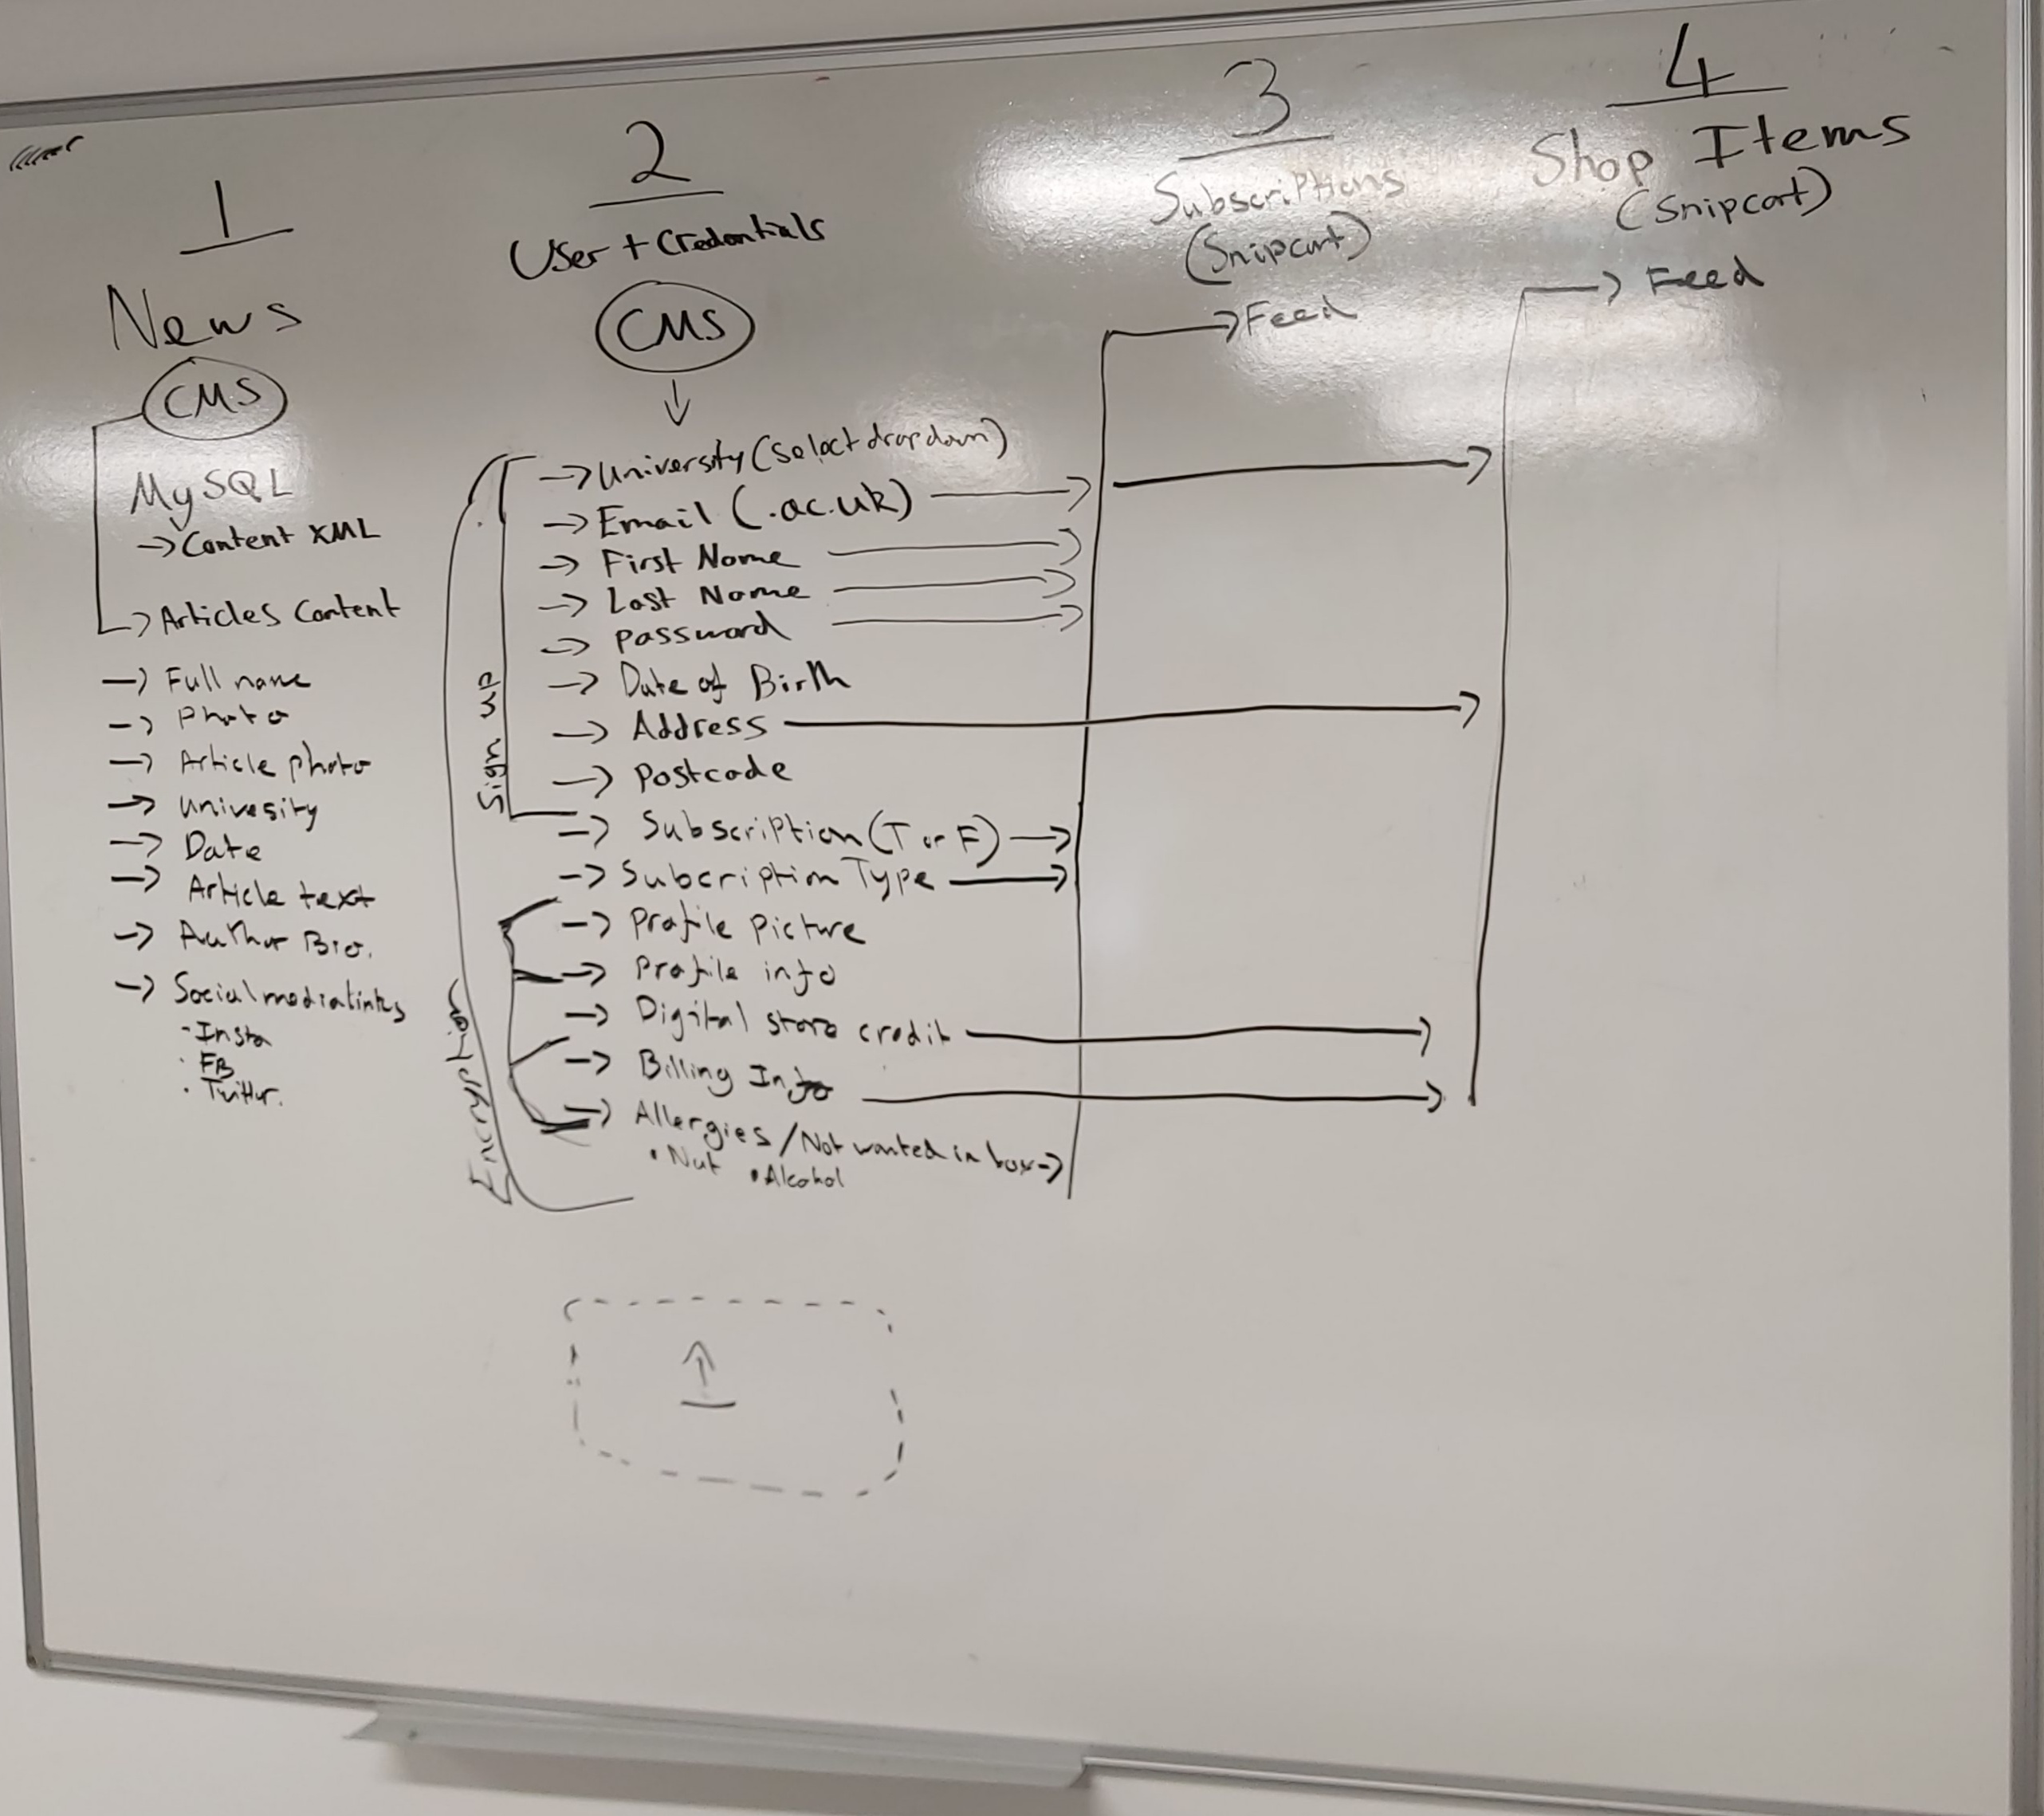 1
News
CMS
MySQL
→ Content XML
→ Articles Content
→ Full name
→ Photo
→ Article photo
→ Univesity
→ Date
→ Article text
→ Author Bio.
→ Social media links
- Insta
· FB
· Twitter.
2
User + Credentials
CMS
↓
→ University (select dropdown)
→ Email (.ac.uk) →
→ First Name →
→ Last Name →
→ Password →
→ Date of Birth
→ Address →
→ Postcode
→ Subscription (T or F) →
→ Subcription Type →
→ Profile Picture
→ Profile info
→ Digital store credit →
→ Billing Info →
→ Allergies / Not wanted in box →
• Nut • Alcohol
Sign up
Encryption
↑
3
Subscriptions
(Snipcart)
→ Feed
4
Shop Items
(Snipcart)
→ Feed